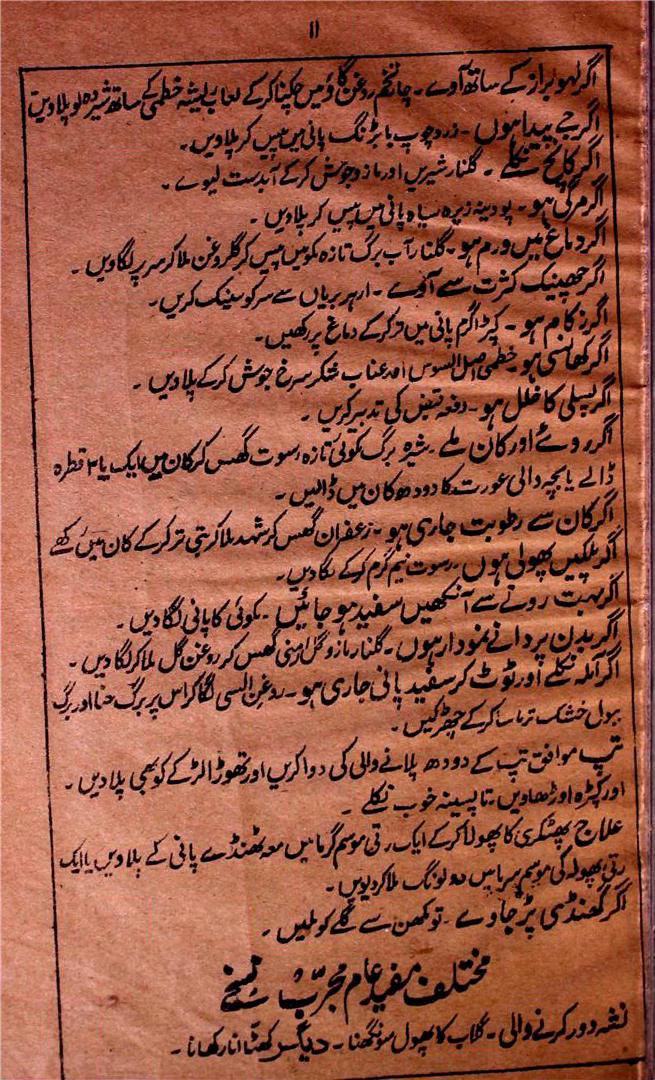 ۱۱
اگر لہو براز کے ساتھ آوے۔ چانخم روغن گاؤ میں چکنا کر کے لعاب ریشہ خطمی کے ساتھ شیر دہ کو پلاویں
اگر جے پیدا ہوں۔ زرد چوب بابڑنگ پانی میں پیس کر پلاویں۔
اگر کانچ نکلے۔ گلنار شیریں اور مازو جوش کر کے آبدست لیوے۔
اگر مرگی ہو۔ پودینہ زیرہ سیاہ پانی میں پیس کر پلاویں۔
اگر دماغ میں ورم ہو۔ گلنار آب برگ تازہ مکو میں پیس کر گلروغن ملا کر سر پر لگاویں۔
اگر چھینک کثرت سے آوے۔ ارہر بریاں سے سر کو سینک کریں۔
اگر زکام ہو۔ کپڑا گرم پانی میں تر کر کے دماغ پر رکھیں۔
اگر کھانسی ہو۔ خطمی اصل السوس اور عناب شکر سرخ جوش کر کے پلاویں۔
اگر پسلی کا خلل ہو۔ دفعہ قبض کی تدبیر کریں۔
اگر روئے اور کان ملے۔ شیرہ برگ مکوئی تازہ رسوت گھس کر کان میں ایک یا ۲ قطرہ
ڈالے یا بچہ والی عورت کا دودھ کان میں ڈالیں۔
اگر کان سے رطوبت جاری ہو۔ زعفران گھس کر شہد ملا کر بتی تر کر کے کان میں رکھے
اگر پلکیں پھولی ہوں۔ رسوت نیم گرم کر کے لگادیں۔
اگر بہت رونے سے آنکھیں سفید ہو جائیں۔ مکوئی کا پانی لگادیں۔
اگر بدن پر دانے نمودار ہوں۔ گلنار مازو گل ارمنی گھس کر روغن گل ملا کر لگادیں۔
اگر آبلہ نکلے اور ٹوٹ کر سفید پانی جاری ہو۔ روغن السی لگا کر اس پر برگ حنا اور برگ
ببول خشک کر کے چھڑکیں۔
تپ موافق تپ کے دودھ پلانے والی کی دوا کریں اور تھوڑا لڑکے کو بھی پلادیں۔
اور کپڑہ اوڑھاویں۔ تا پسینہ خوب نکلے۔
علاج پھٹکری کا پھولا کر کے ایک رتی موسم گرما میں معہ ٹھنڈے پانی کے پلاویں یا ایک
رتی پھولہ کی موسم سرما میں دو لونگ ملا کر دیویں۔
اگر گھنڈی پڑ جاوے۔ تو مکھن سے گلے کو ملیں۔
مختلف مفید عام مجرب نسخے
نشہ دور کرنے والی۔ گلاب کا پھول سونگھنا۔ دیگر کھٹا انار کھانا۔